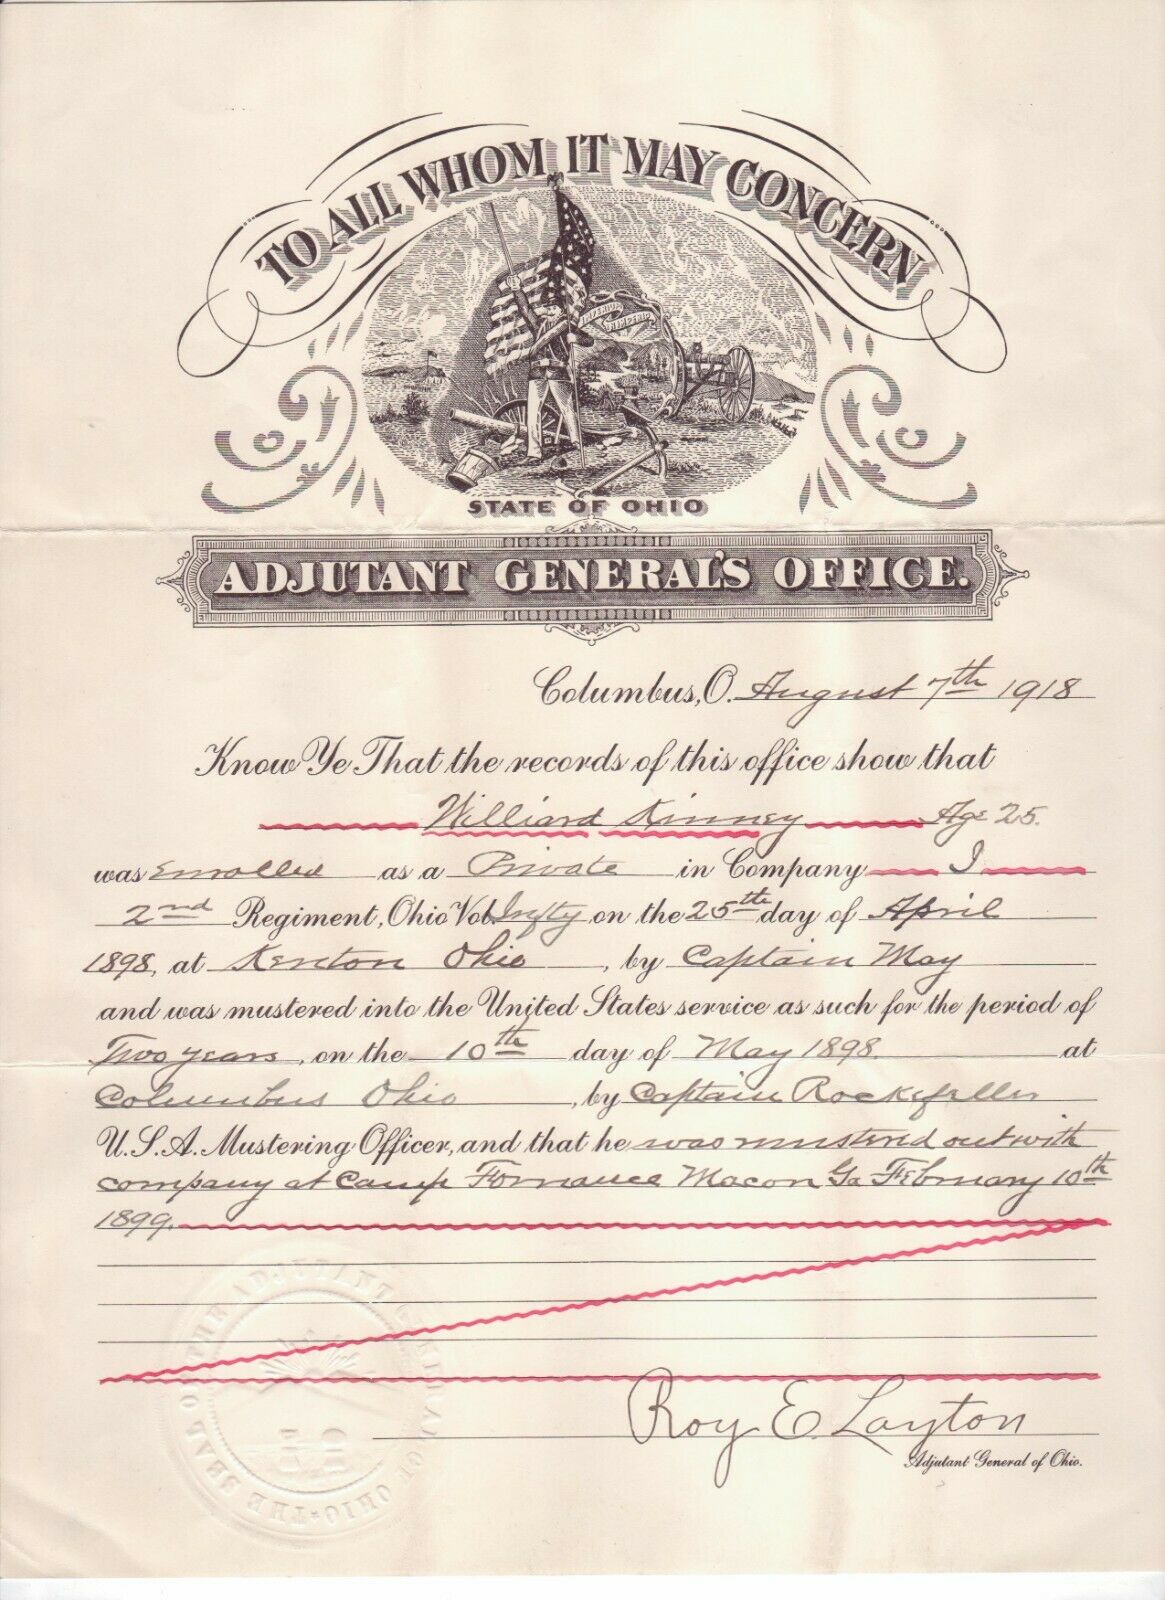 TO ALL WHOM IT MAY CONCERN
IMPERIUM IN IMPERIO
STATE OF OHIO
ADJUTANT GENERAL'S OFFICE.
Columbus, O. August 7th 1918
Know Ye That the records of this office show that
Williard Kinney Age 25.
was Enrolled as a Private in Company I
2nd Regiment, Ohio Vol. Infty on the 25th day of April
1898, at Kenton Ohio, by Captain May
and was mustered into the United States service as such for the period of
Two years, on the 10th day of May 1898. at
Columbus Ohio, by Captain Rockefeller
U.S.A. Mustering Officer, and that he was mustered out with
company at Camp Fornance Macon Ga February 10th
1899.
THE SEAL OF THE ADJUTANT GENERAL OF OHIO
Roy E. Layton
Adjutant General of Ohio.